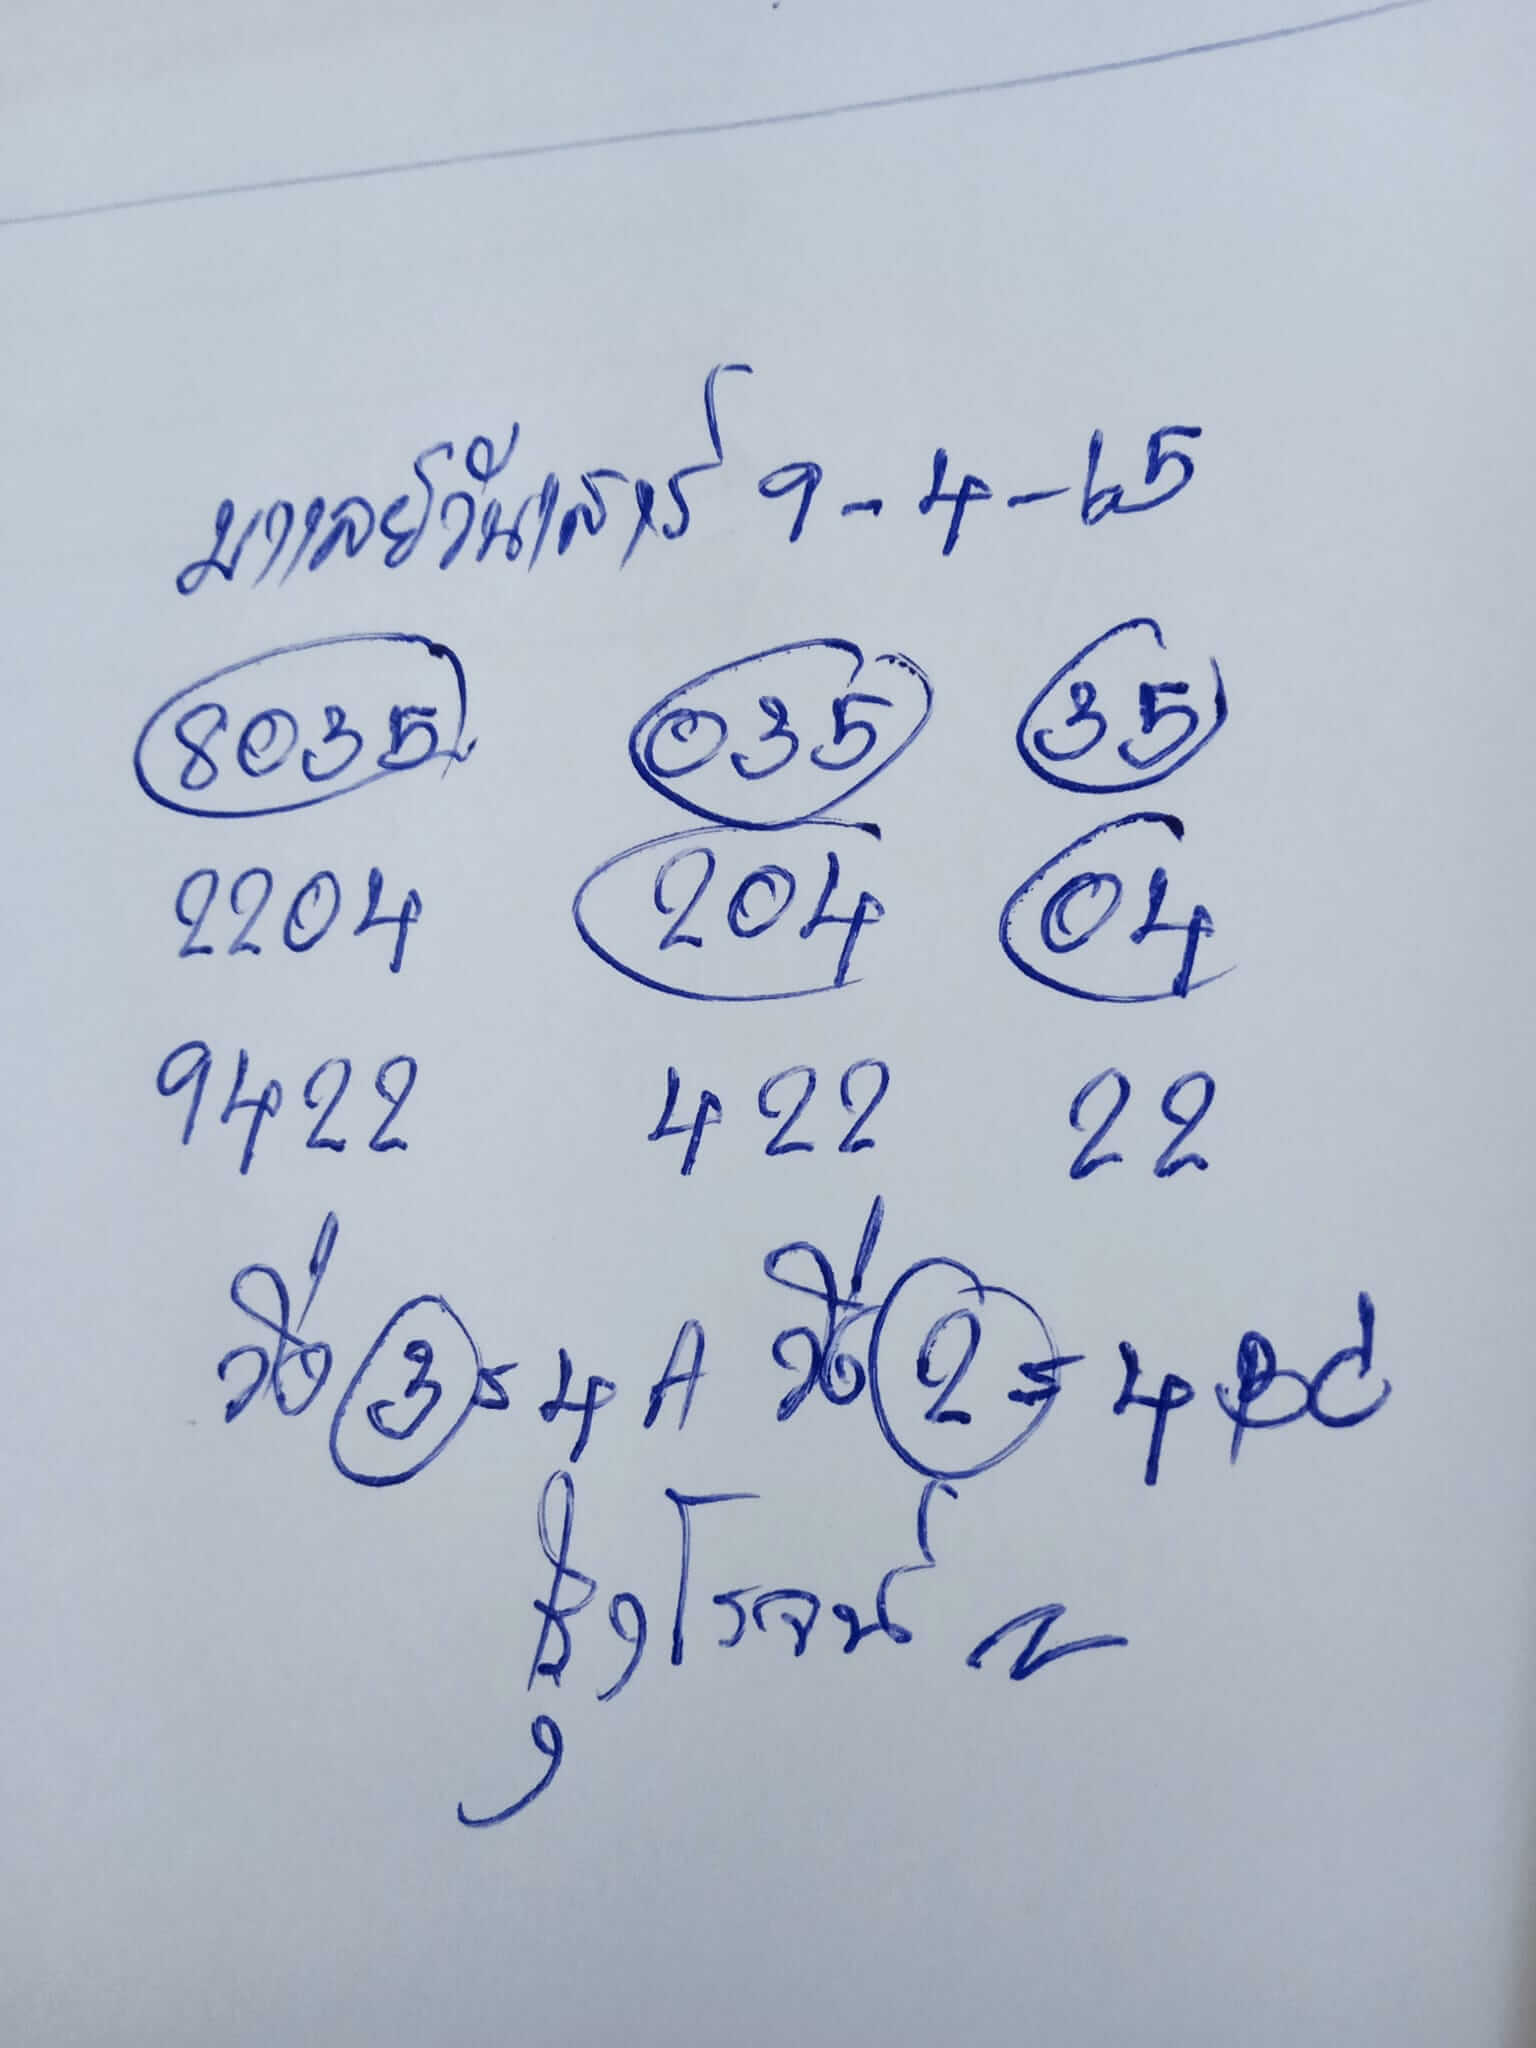 มาเลย์วันเสาร์ 9-4-65
8035 035 35
2204 204 04
9422 422 22
วิ่ง 3=4 A วิ่ง 2=4 BC
โรจน์